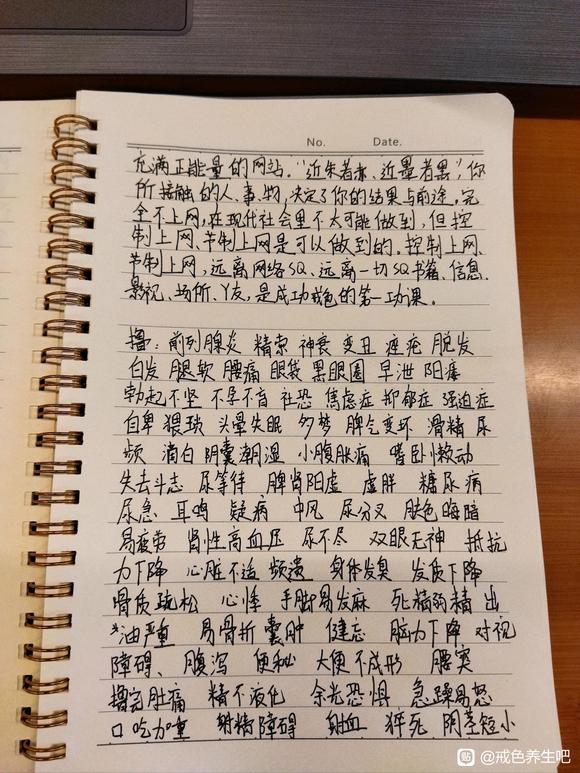 No. Date.
充满正能量的网站。“近朱者赤、近墨者黑”，你
所接触的人、事、物，决定了你的结果与前途。完
全不上网，在现代社会里不太可能做到，但控
制上网、节制上网是可以做到的。控制上网、
节制上网，远离网络SQ、远离一切SQ书籍、信息、
影视、场所、Y友，是成功戒色的第一功课。
撸：前列腺炎 精索 神衰 变丑 痤疮 脱发
白发 腿软 腰痛 眼袋 黑眼圈 早泄 阳痿
勃起不坚 不孕不育 社恐 焦虑症 抑郁症 强迫症
自卑 猥琐 头晕失眠 多梦 脾气变坏 滑精 尿
频 滴白 阴囊潮湿 小腹胀痛 嗜卧懒动
失去斗志 尿等待 脾肾阳虚 虚胖 糖尿病
尿急 耳鸣 疑病 中风 尿分叉 肤色晦暗
易疲劳 肾性高血压 尿不尽 双眼无神 抵抗
力下降 心脏不适 频遗 身体发臭 发质下降
骨质疏松 心悸 手脚易发麻 死精弱精 出
油严重 易骨折 囊肿 健忘 脑力下降 对视
障碍、 腹泻 便秘 大便不成形 腰突
撸完肚痛 精不液化 余光恐惧 急躁易怒
口吃加重 射精障碍 射血 猝死 阴茎短小
贴 @戒色养生吧